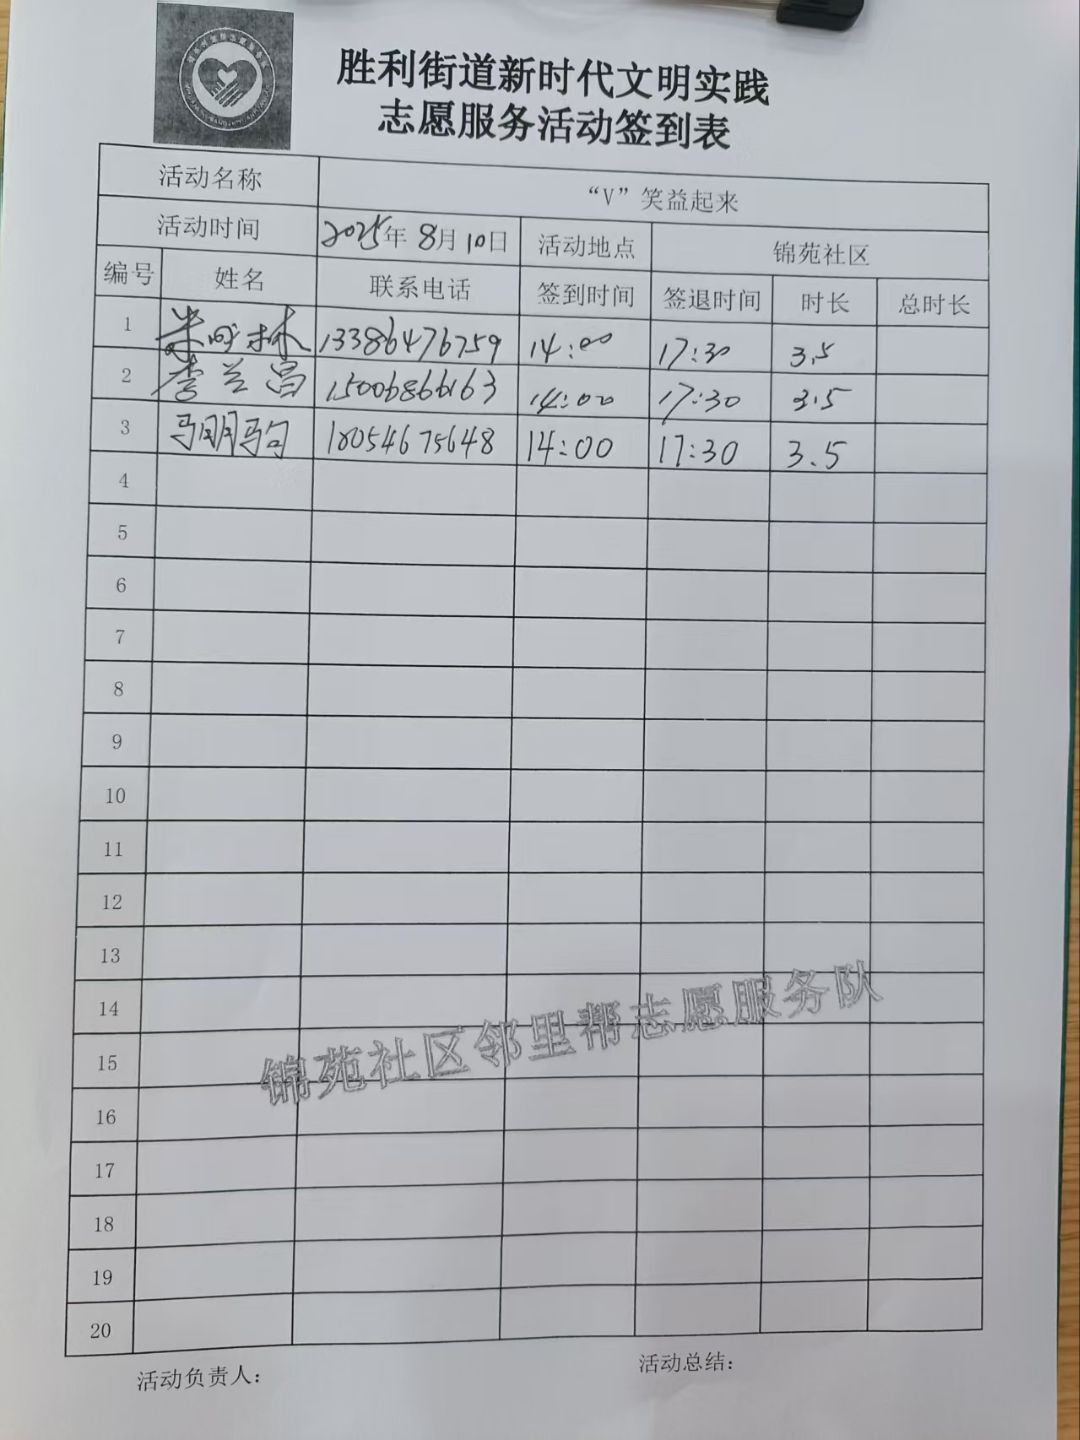 胜利街道新时代文明实践
志愿服务活动签到表
活动名称 “V”笑益起来
活动时间 2025年 8月 10日 活动地点 锦苑社区
编号 姓名 联系电话 签到时间 签退时间 时长 总时长
1 13386476759 14:00 17:30 3.5
2 李兰昌 15006866163 14:00 17:30 3.5
3 18054675648 14:00 17:30 3.5
4
5
6
7
8
9
10
11
12
13
14
15
16
17
18
19
20
锦苑社区邻里帮志愿服务队
活动负责人: 活动总结: